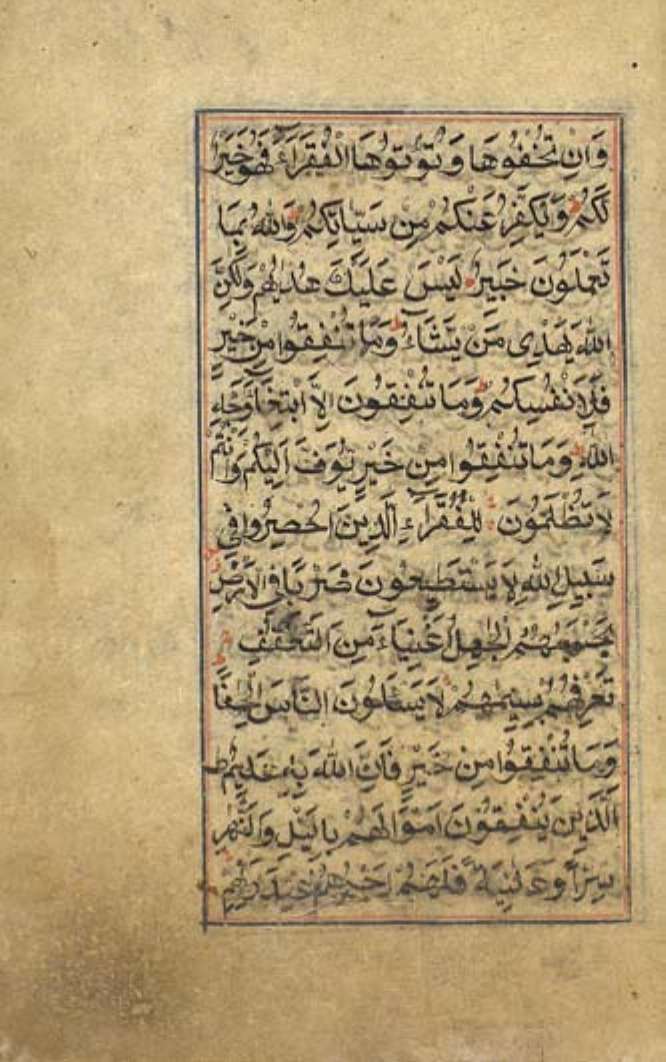 وَاِنْ تُخْفُوهَا وَتُؤْتُوهَا الْفُقَرَاءَ فَهُوَ خَيْرٌ
لَكُمْ وَيُكَفِّرُ عَنْكُمْ مِنْ سَيِّاٰتِكُمْ وَاللهُ بِمَا
تَعْمَلُونَ خَبِيرٌ لَيْسَ عَلَيْكَ هُدٰىهُمْ وَلٰكِنَّ
اللهَ يَهْدِى مَنْ يَشَاءُ وَمَا تُنْفِقُوا مِنْ خَيْرٍ
فَلِاَنْفُسِكُمْ وَمَا تُنْفِقُونَ اِلَّا ابْتِغَاءَ وَجْهِ
اللهِ وَمَا تُنْفِقُوا مِنْ خَيْرٍ يُوَفَّ اِلَيْكُمْ وَاَنْتُمْ
لَا تُظْلَمُونَ لِلْفُقَرَاءِ الَّذِينَ اُحْصِرُوا فِى
سَبِيلِ اللهِ لَا يَسْتَطِيعُونَ ضَرْبًا فِى الْاَرْضِ
يَحْسَبُهُمُ الْجٰهِلُ اَغْنِيَاءَ مِنَ التَّعَفُّفِ
تَعْرِفُهُمْ بِسِيمٰهُمْ لَا يَسْـَٔلُونَ النَّاسَ اِلْحَافًا
وَمَا تُنْفِقُوا مِنْ خَيْرٍ فَاِنَّ اللهَ بِهِ عَلِيمٌ
اَلَّذِينَ يُنْفِقُونَ اَمْوَالَهُمْ بِالَّيْلِ وَالنَّهَارِ
سِرًّا وَعَلَانِيَةً فَلَهُمْ اَجْرُهُمْ عِنْدَ رَبِّهِمْ